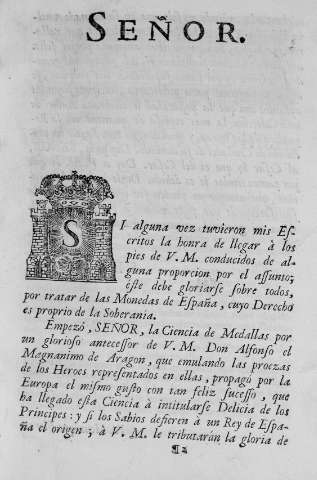 SEÑOR.
SI alguna vez tuvieron mis Es-
critos la honra de llegar à los
pies de V. M. conducidos de al-
guna proporcion por el assunto;
éste debe gloriarse sobre todos,
por tratar de las Monedas de España, cuyo Derecho
es proprio de la Soberania.
Empezó, SEÑOR, la Ciencia de Medallas por
un glorioso antecessor de V. M. Don Alfonso el
Magnanimo de Aragon, que emulando las proezas
de los Heroes representados en ellas, propagó por la
Europa el mismo gusto con tan feliz sucesso, que
ha llegado esta Ciencia à intitularse Delicia de los
Principes: y si los Sabios defieren à un Rey de Espa-
ña el origen; à V. M. le tributarán la gloria de
¶2